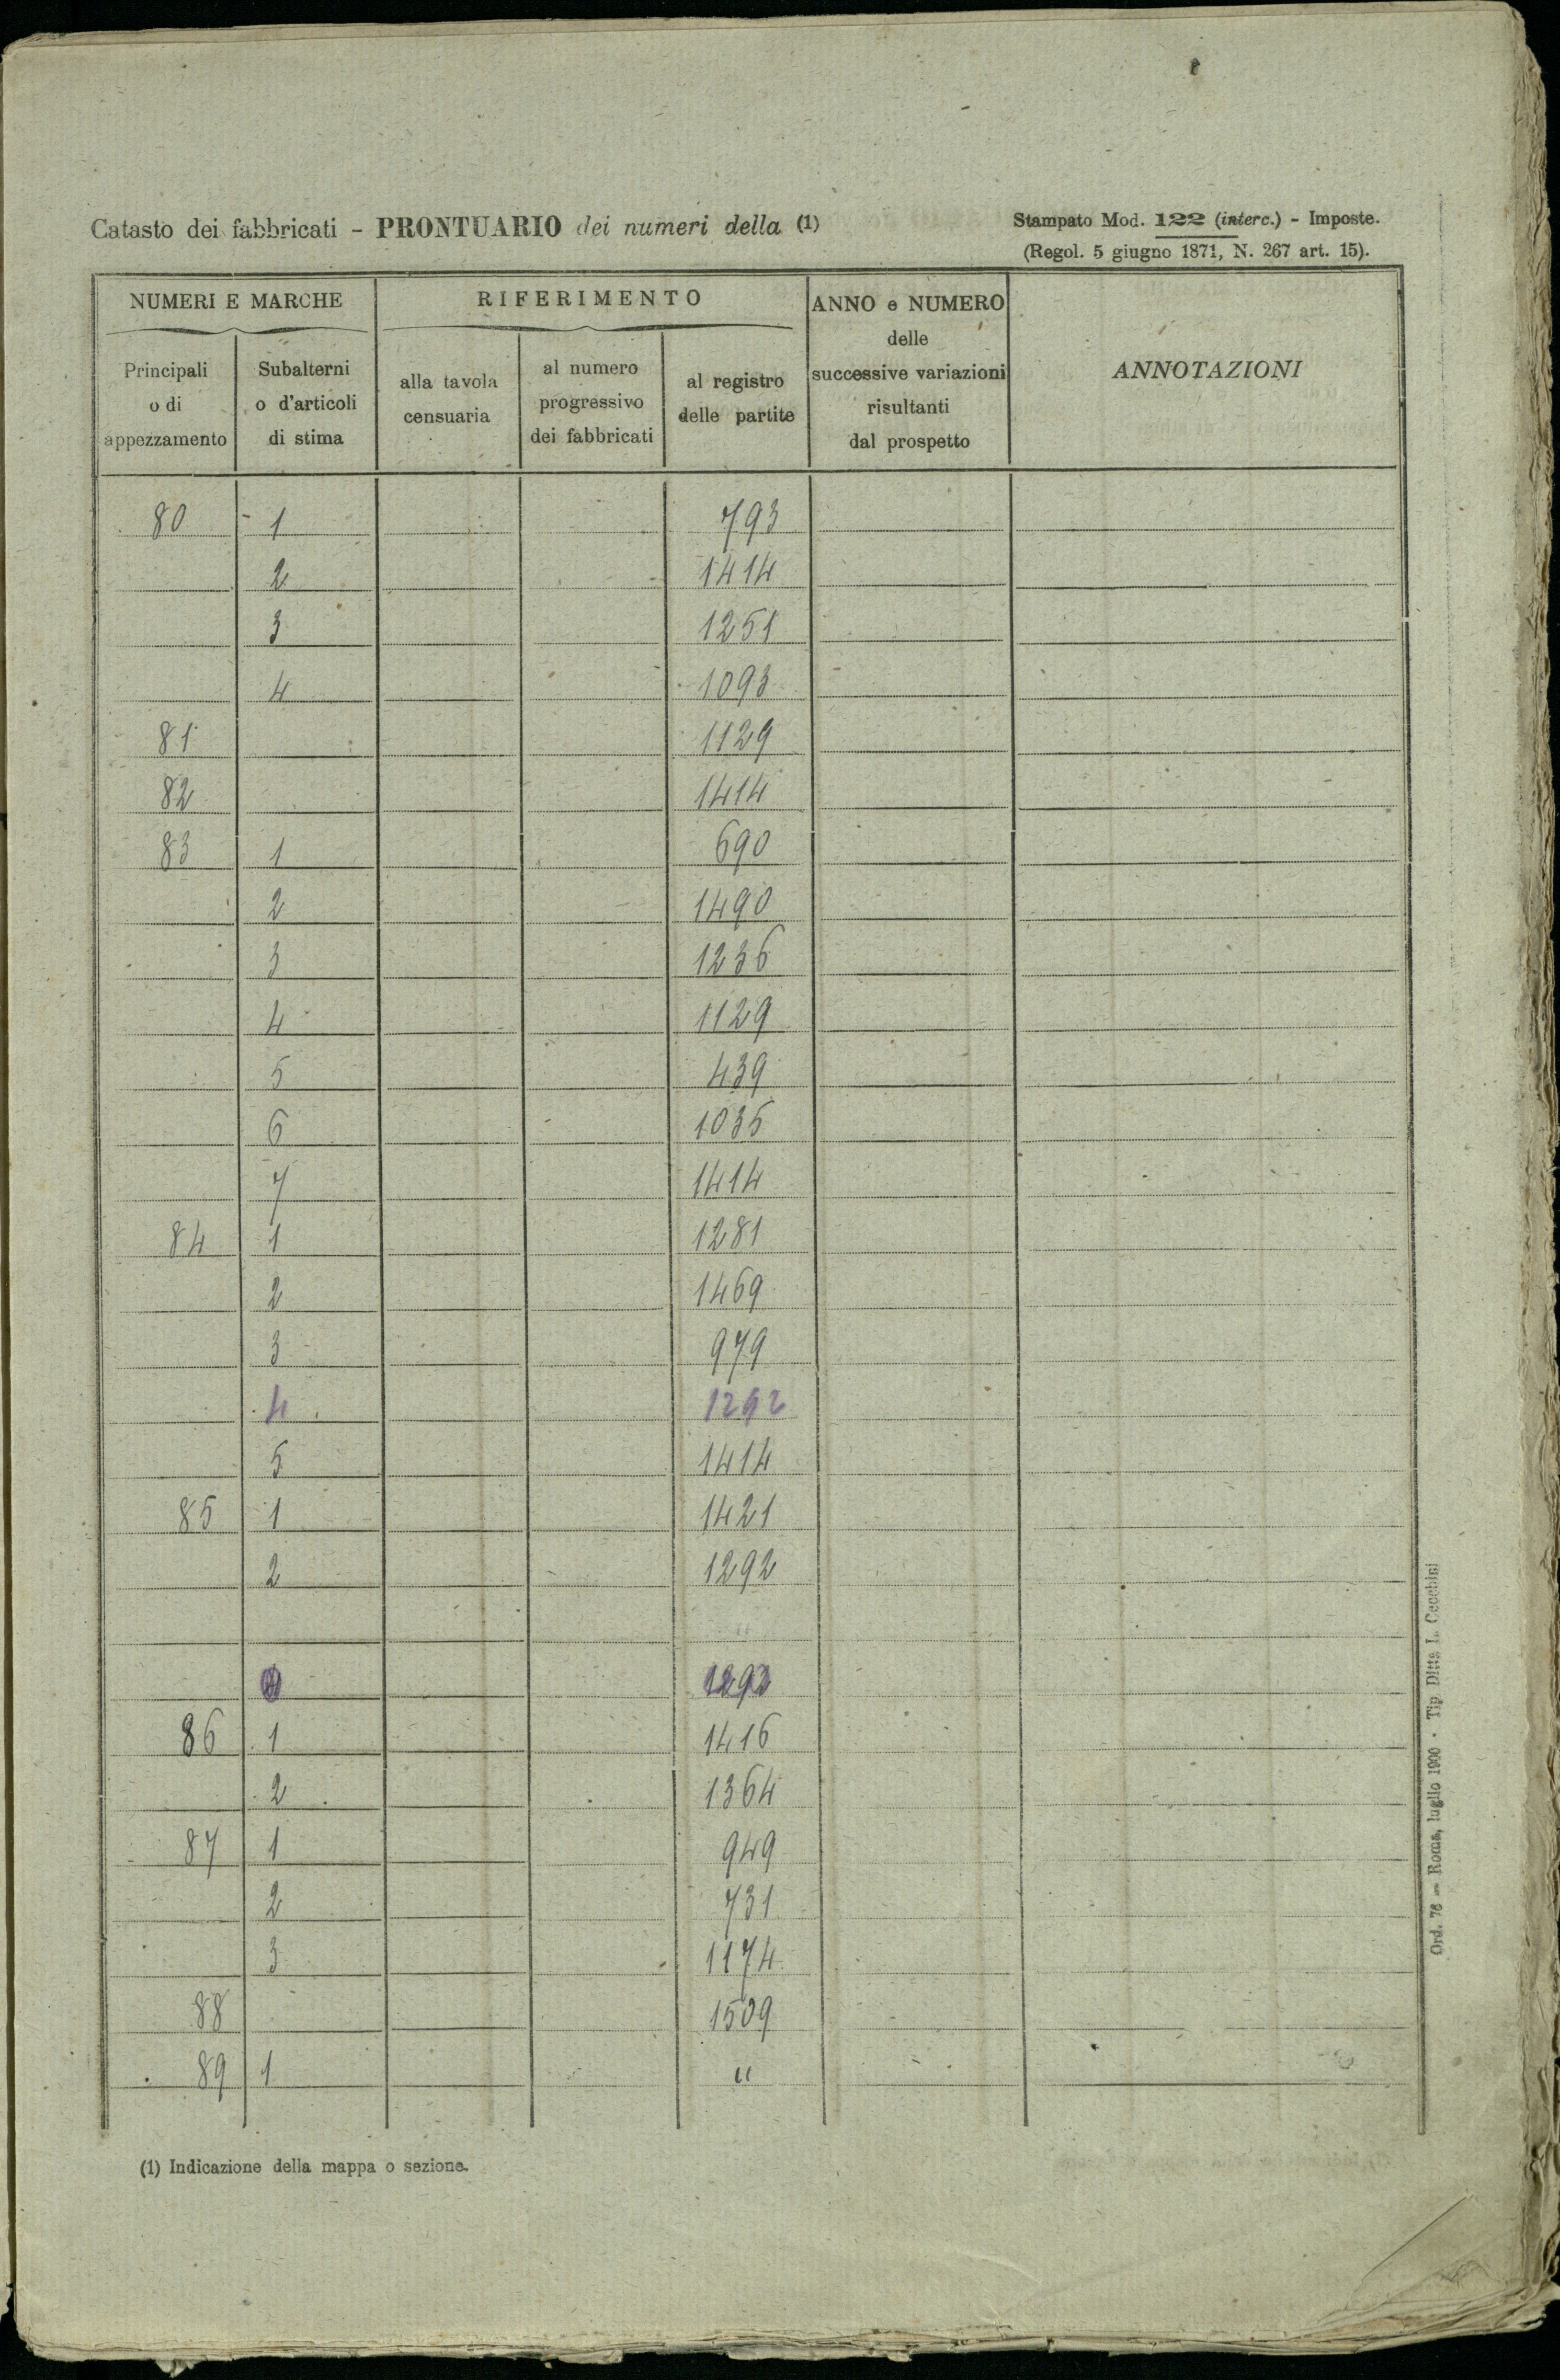 Catasto dei fabbricati - PRONTUARIO dei numeri della (1)
Stampato Mod. 122 (interc.) - Imposte.
(Regol. 5 giugno 1871, N. 267 art. 15).
NUMERI E MARCHE
RIFERIMENTO
ANNO e NUMERO
delle
successive variazioni
risultanti
dal prospetto
ANNOTAZIONI
Principali
o di
appezzamento
Subalterni
o d'articoli
di stima
alla tavola
censuaria
al numero
progressivo
dei fabbricati
al registro
delle partite
80 1 793
2 1414
3 1251
4 1093
81 1129
82 1414
83 1 690
2 1490
3 1236
4 1129
5 439
6 1035
7 1414
84 1 1281
2 1469
3 979
4 1292
5 1414
85 1 1421
2 1292
86 1 1416
2 1364
87 1 949
2 731
3 1174
88 1509
89 1 "
(1) Indicazione della mappa o sezione.
Ord. 76 — Roma, luglio 1900 · Tip. Ditta L. Cecchini